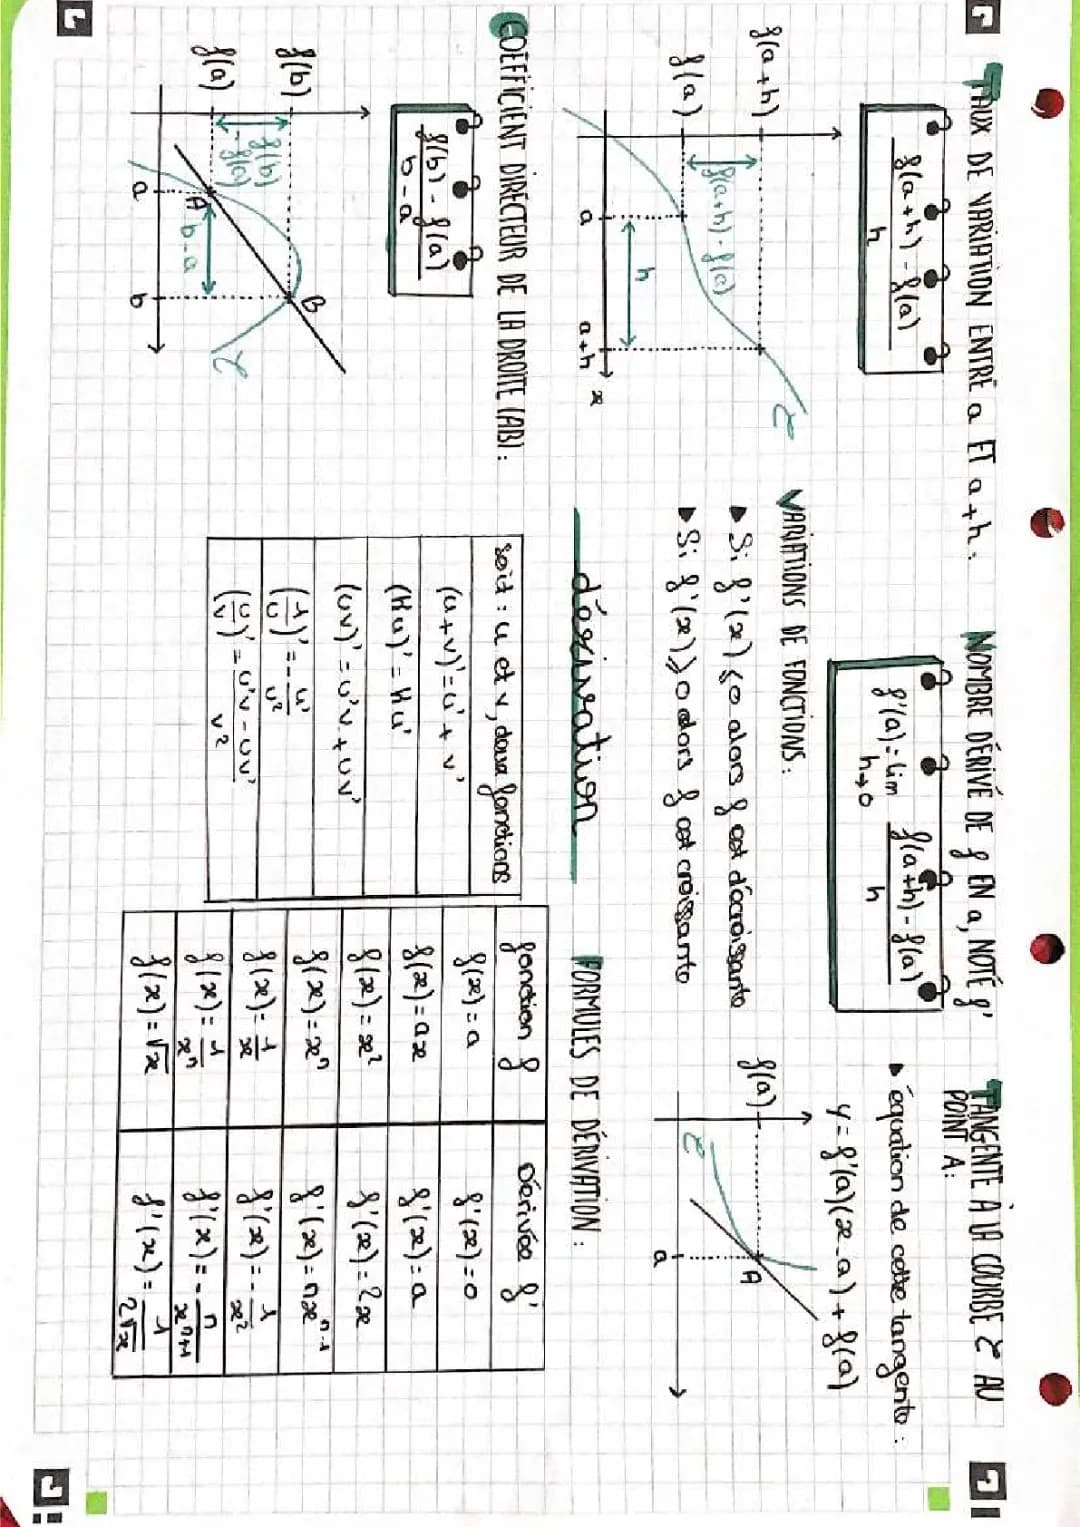 TAUX DE VARIATION ENTRE a ET a+h:
f(a+h) - f(a)
h
f(a+h)
f(a)
f(a+h) - f(a)
h
a
a+h
x
C
COEFFICIENT DIRECTEUR DE LA DROITE (AB):
f(b) - f(a)
b - a
f(b)
f(a)
f(b)
- f(a)
A
B
b-a
a
b
C
NOMBRE DÉRIVÉ DE f EN a, NOTÉ f'
f'(a) = lim f(a+h) - f(a)
h→0 h
VARIATIONS DE FONCTIONS:
▸ Si f'(x) ⩽ 0 alors f est décroissante
▸ Si f'(x) ⩾ 0 alors f est croissante
dérivation
soit : u et v, deux fonctions
(u+v)' = u' + v'
(ku)' = ku'
(uv)' = u'v + uv'
(1/u)' = - u'/u²
(u/v)' = u'v - uv' / v²
TANGENTE À LA COURBE C AU
POINT A:
▸ équation de cette tangente :
y = f'(a)(x-a) + f(a)
f(a)
A
C
a
FORMULES DE DÉRIVATION :
fonction f Dérivée f'
f(x) = a f'(x) = 0
f(x) = ax f'(x) = a
f(x) = x² f'(x) = 2x
f(x) = xⁿ f'(x) = nxⁿ⁻¹
f(x) = 1/x f'(x) = - 1/x²
f(x) = 1/xⁿ f'(x) = - n/xⁿ⁺¹
f(x) = √x f'(x) = 1/2√x